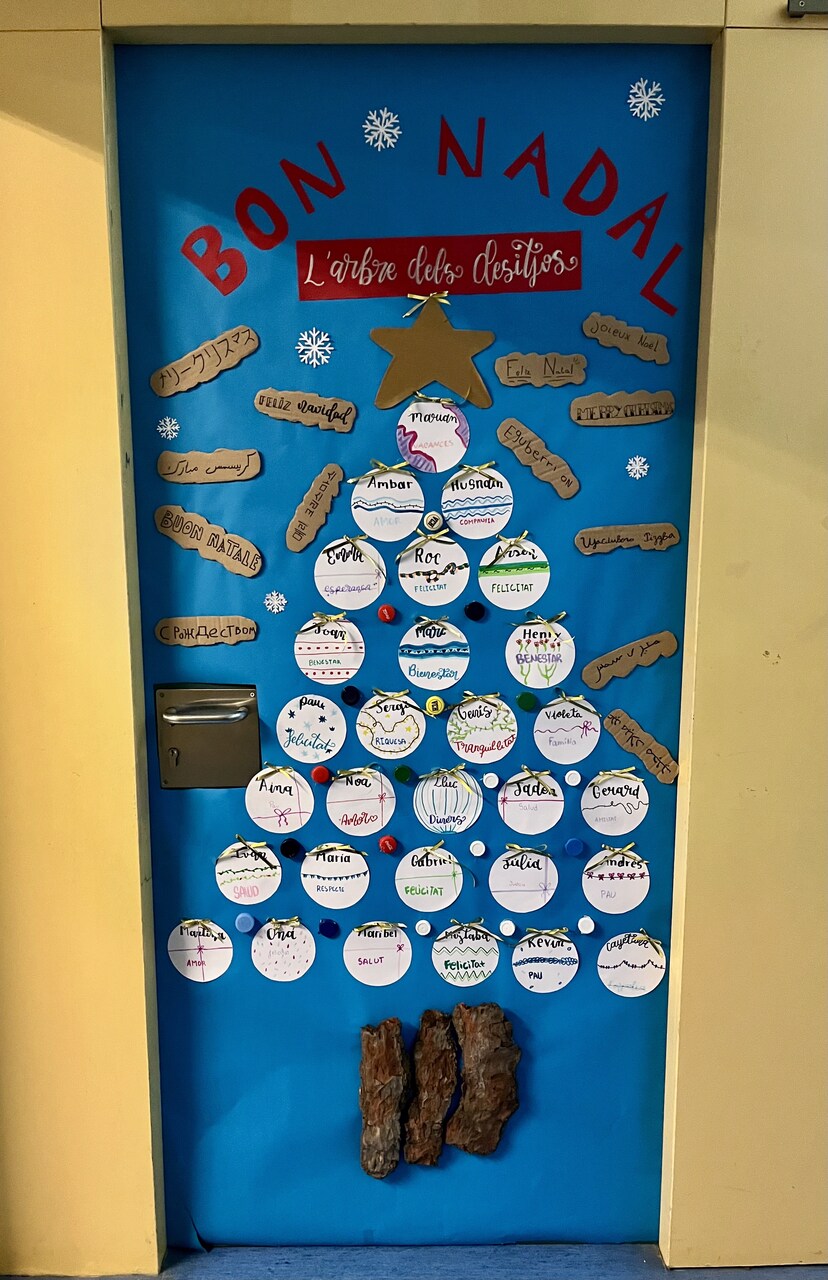 BON NADAL
L'arbre dels desitjos
メリークリスマス
Joieux Noël
Feliz Natal
FELIZ navidad
MERRY CHRISTMAS
Eguberri on
كريسمس مبارك
메리 크리스마스
BUON NATALE
С РОЖДЕСТВОМ
Marian
VACANCES
Ambar
AMOR
Husnain
COMPANYIA
Emma
esperança
Roc
FELICITAT
Arsen
FELICITAT
Joan
BENESTAR
Marc
Bienestar
Henry
BENESTAR
Pau
felicitat
Sergi
RIQUESA
Genís
Tranquil·litat
Violeta
Família
Aina
Noa
Amor
Lluc
Diners
Jadon
Salud
Gerard
Lugo
SALUD
Maria
RESPECTE
Gabriel
FELICITAT
Júlia
Andrés
PAU
Martina
AMOR
Ona
Maribel
SALUT
Mujtaba
Felicitat
Kevin
PAU
Cayetana